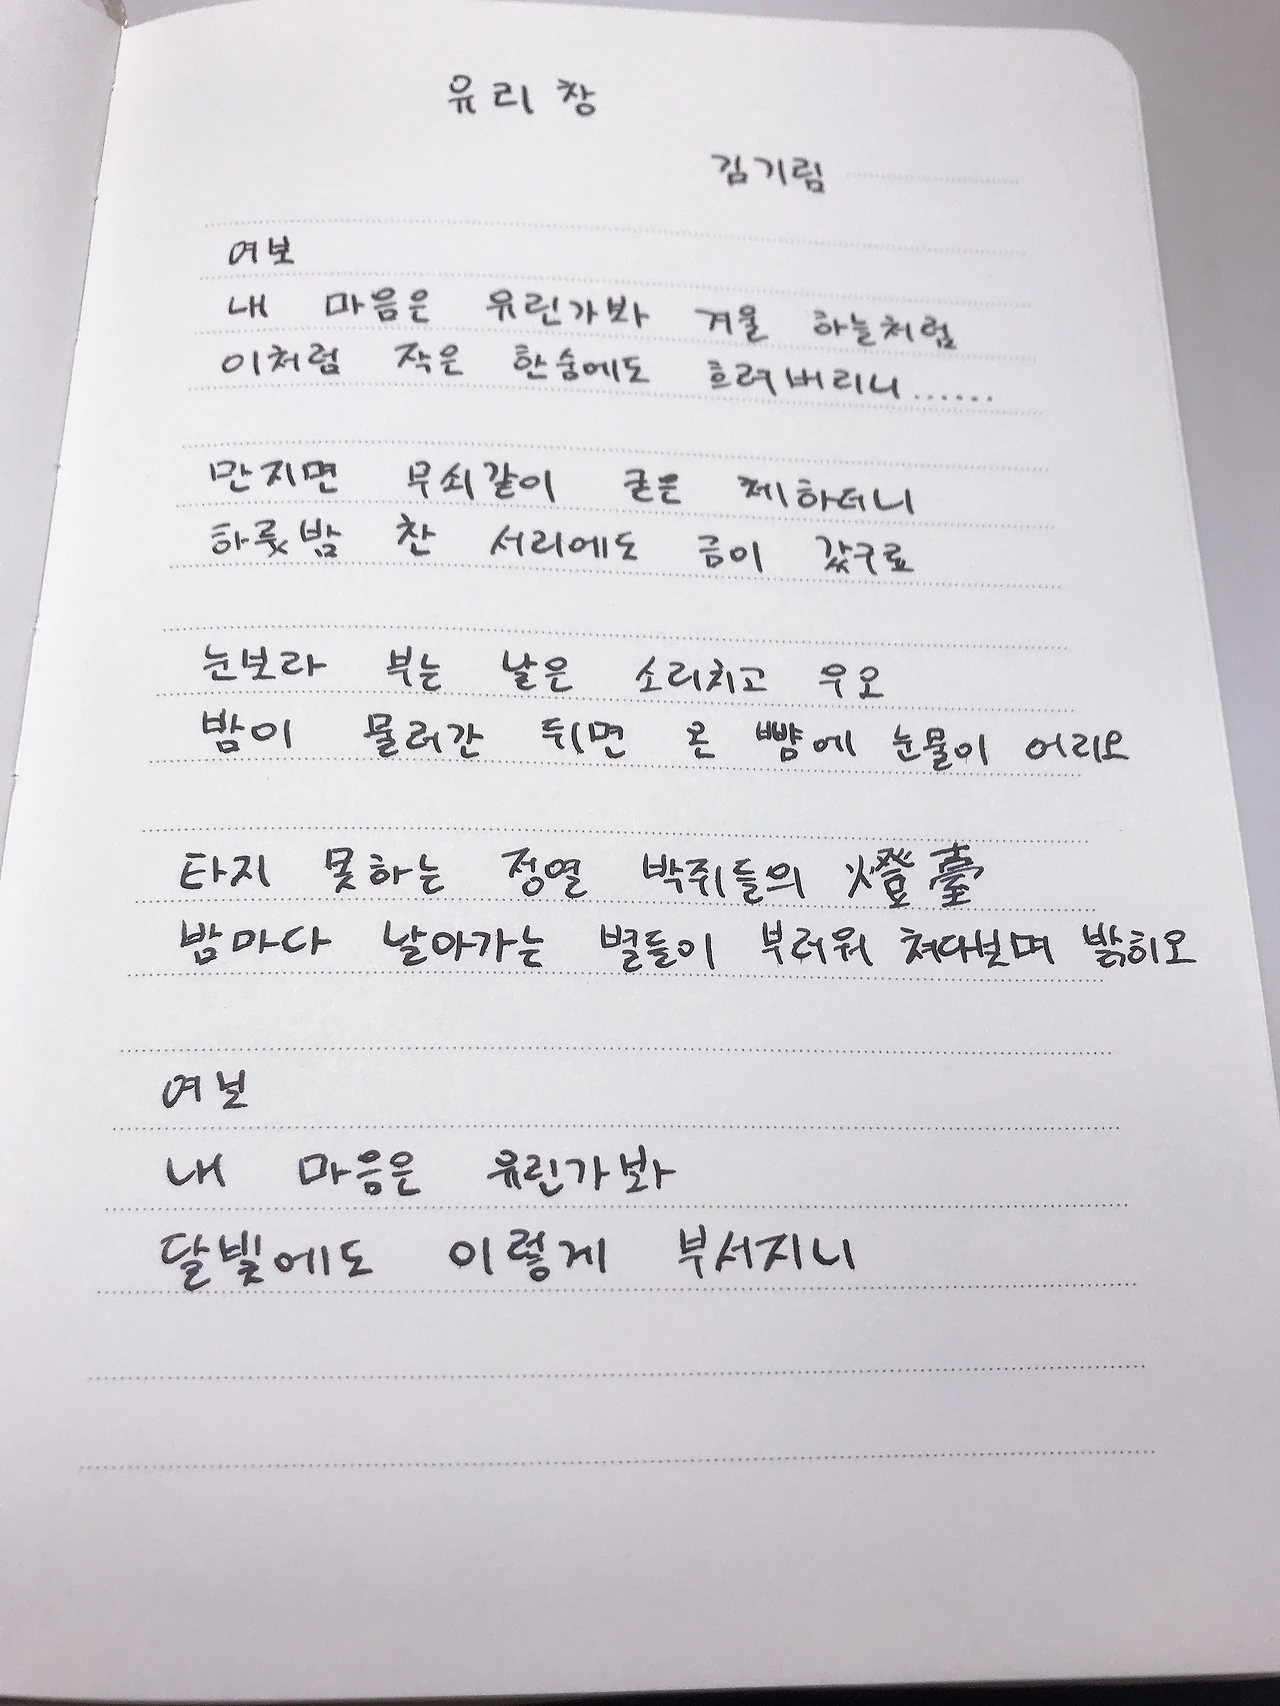 유리창
김기림
여보
내 마음은 유린가봐 겨울 하늘처럼
이처럼 작은 한숨에도 흐려버리니......
만지면 무쇠같이 굳은 체하더니
하룻밤 찬 서리에도 금이 갔구료
눈보라 부는 날은 소리치고 우오
밤이 물러간 뒤면 온 뺨에 눈물이 어리오
타지 못하는 정열 박쥐들의 燈臺
밤마다 날아가는 별들이 부러워 쳐다보며 밝히오
여보
내 마음은 유린가봐
달빛에도 이렇게 부서지니